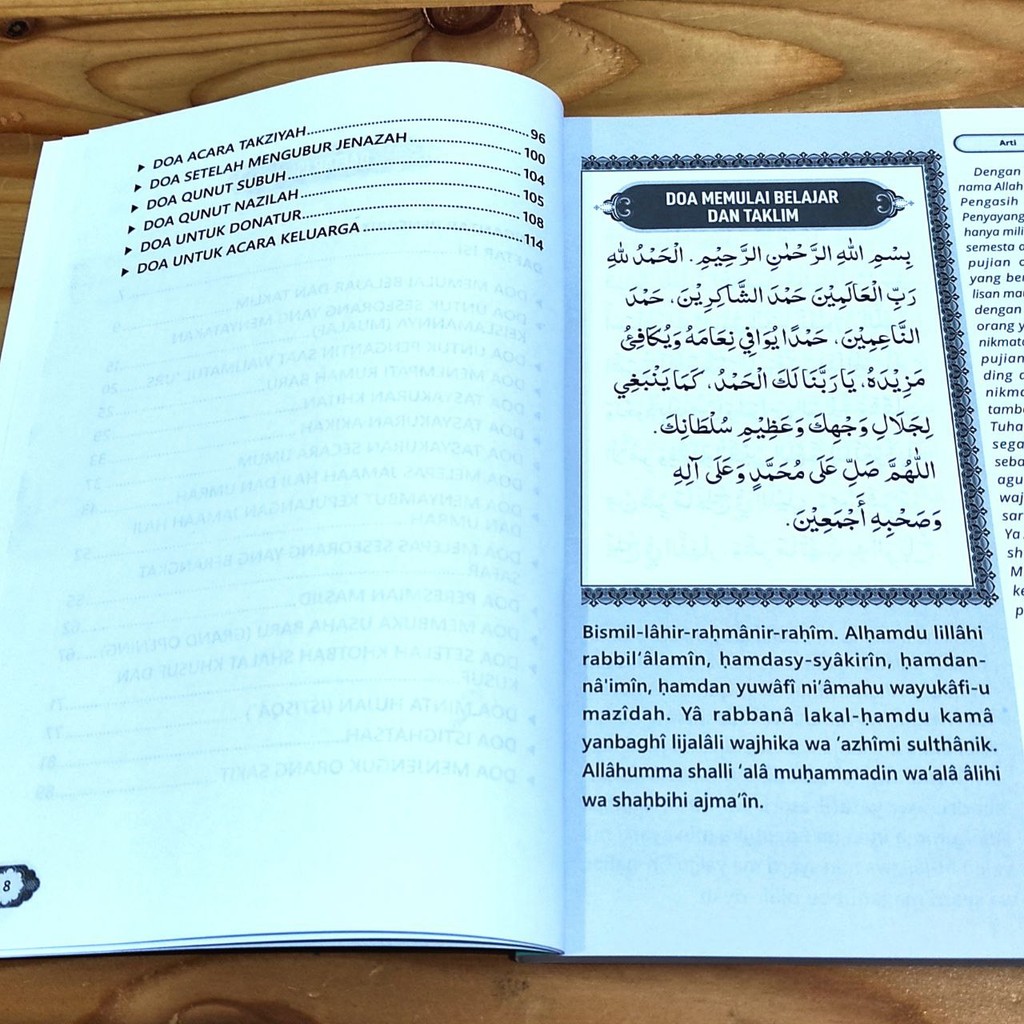 ▸ DOA ACARA TAKZIYAH.....96
▸ DOA SETELAH MENGUBUR JENAZAH.....100
▸ DOA QUNUT SUBUH.....104
▸ DOA QUNUT NAZILAH.....105
▸ DOA UNTUK DONATUR.....108
▸ DOA UNTUK ACARA KELUARGA.....114
8
DOA MEMULAI BELAJAR
DAN TAKLIM
بِسْمِ اللهِ الرَّحْمٰنِ الرَّحِيْمِ. الْحَمْدُ لِلّٰهِ
رَبِّ الْعَالَمِيْنَ حَمْدَ الشَّاكِرِيْنَ، حَمْدَ
النَّاعِمِيْنَ، حَمْدًا يُوَافِي نِعَامَهُ وَيُكَافِئُ
مَزِيْدَهُ، يَا رَبَّنَا لَكَ الْحَمْدُ، كَمَا يَنْبَغِي
لِجَلَالِ وَجْهِكَ وَعَظِيْمِ سُلْطَانِكَ.
اَللّٰهُمَّ صَلِّ عَلَى مُحَمَّدٍ وَعَلَى آلِهِ
وَصَحْبِهِ أَجْمَعِيْنَ.
Bismil-lâhir-raḥmânir-raḥîm. Alḥamdu lillâhi
rabbil‘âlamîn, ḥamdasy-syâkirîn, ḥamdan-
nâ'imîn, ḥamdan yuwâfî ni‘âmahu wayukâfi-u
mazîdah. Yâ rabbanâ lakal-ḥamdu kamâ
yanbaghî lijalâli wajhika wa ‘azhîmi sulthânik.
Allâhumma shalli ‘alâ muḥammadin wa‘alâ âlihi
wa shaḥbihi ajma‘în.
Arti
Dengan
nama Allah
Pengasih
Penyayang
hanya mili
semesta a
pujian
yang be
lisan ma
dengan
orang y
nikmat
pujian
ding
nikma
tamb
Tuha
sega
seba
agu
waj
sar
Ya
sh
M
ke
p